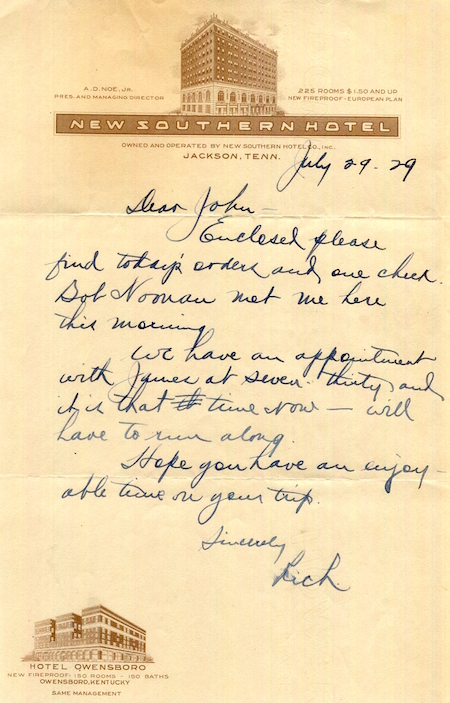 A. D. NOE, JR.
PRES. AND MANAGING DIRECTOR
225 ROOMS $1.50 AND UP
NEW FIREPROOF - EUROPEAN PLAN
NEW SOUTHERN HOTEL
OWNED AND OPERATED BY NEW SOUTHERN HOTEL CO., INC.
JACKSON, TENN.
July 29 - 29
Dear John -
Enclosed please
find today's orders and one check.
Bob Noonan met me here
this morning
We have an appointment
with James at seven-thirty and
it is that time now - will
have to run along.
Hope you have an enjoy-
able time on your trip.
Sincerely
Rich.
HOTEL OWENSBORO
NEW FIREPROOF - 150 ROOMS - 150 BATHS
OWENSBORO, KENTUCKY
SAME MANAGEMENT